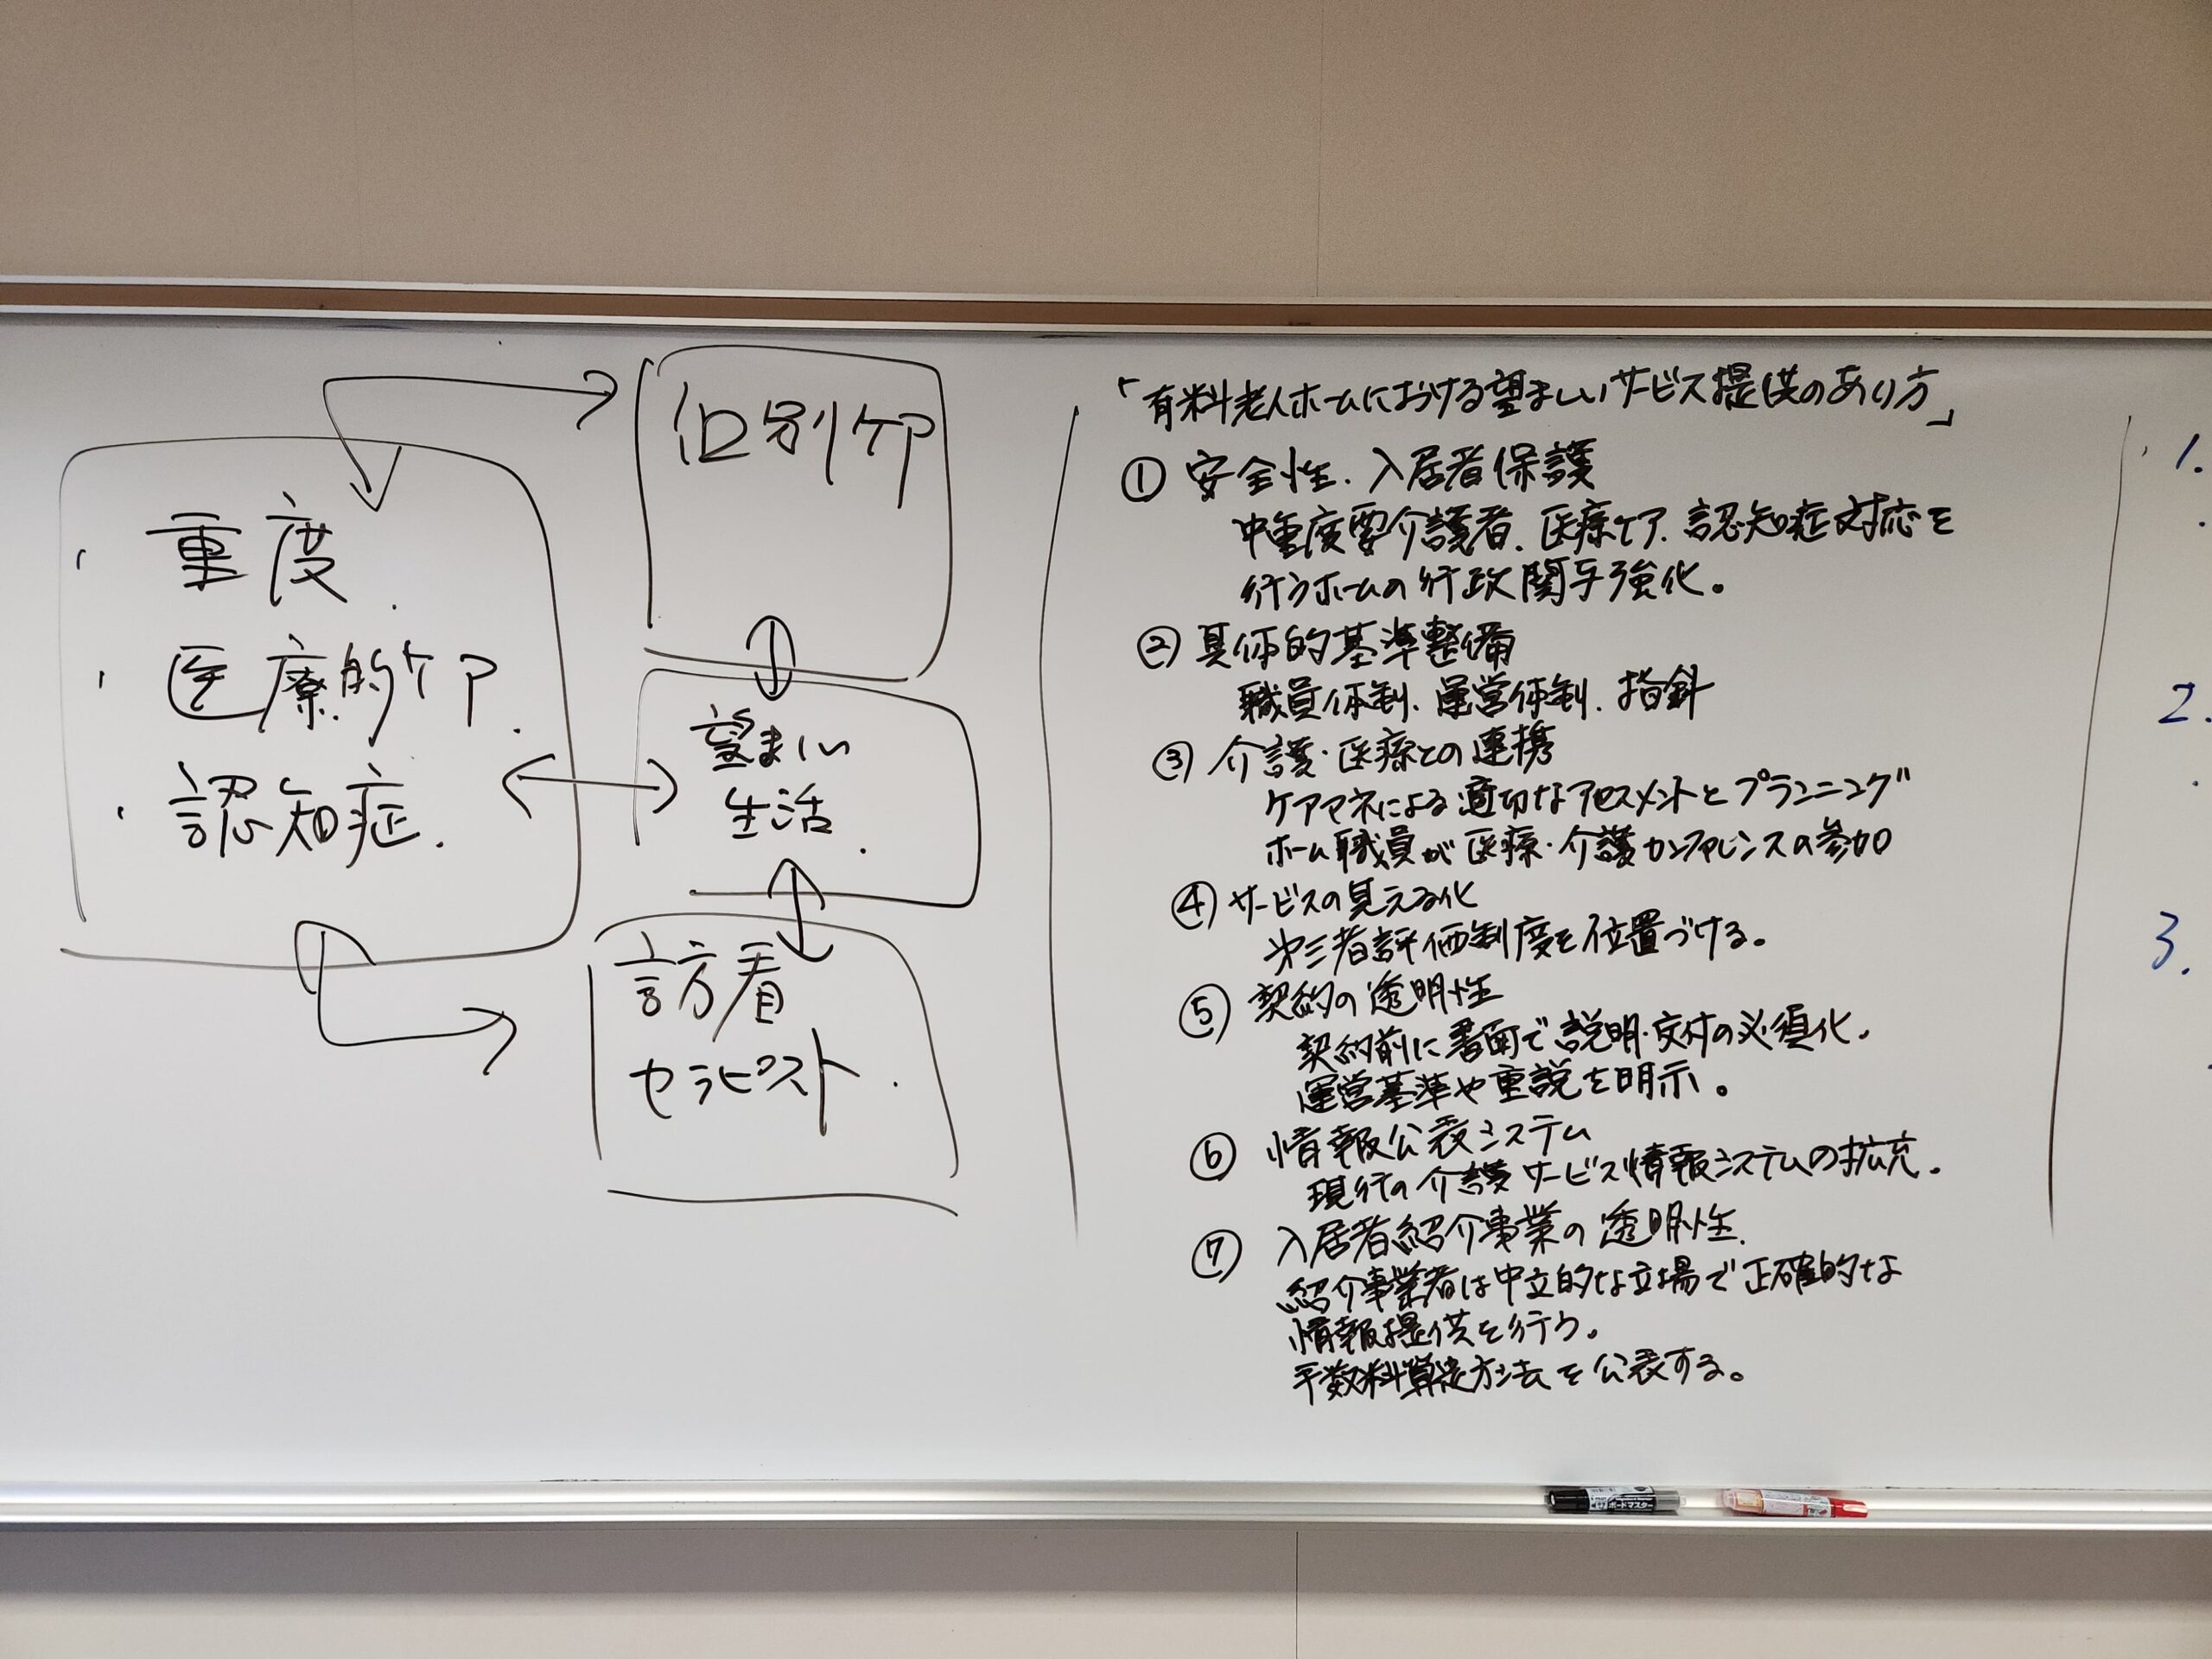 ・重度.
・医療的ケア.
・認知症.
個別ケア
望ましい
生活.
訪看
セラピスト.
「有料老人ホームにおける望ましいサービス提供のあり方」
① 安全性.入居者保護
中重度要介護者.医療ケア.認知症対応を
行うホームの行政関与強化。
② 具体的基準整備
職員体制.運営体制.指針
③ 介護・医療との連携
ケアマネによる適切なアセスメントとプランニング
ホーム職員が医療・介護カンファレンスの参加
④ サービスの見える化
第三者評価制度を位置づける。
⑤ 契約の透明性
契約前に書面で説明・交付の必須化.
運営基準や重説を明示。
⑥ 情報公表システム
現行の介護サービス情報システムの拡充.
⑦ 入居者紹介事業の透明性.
紹介事業者は中立的な立場で正確的な
情報提供を行う。
手数料算定方法を公表する。
1.
2.
3.
ボードマスター